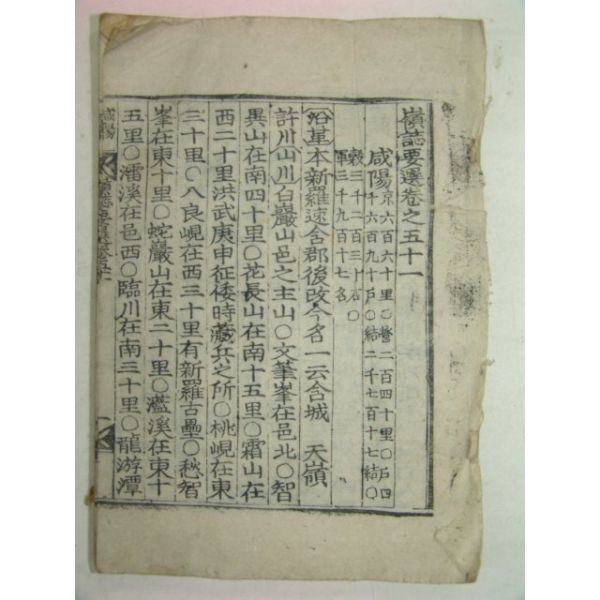 嶺誌要選卷之五十一
咸陽
京六百六十里○營二百四十里○戶四
千六百九十戶○結二千七百十七結○
穀三千二百三十石○
軍三千九百十七名
沿革本新羅速含郡後改今名一云含城 天嶺
許川山川白巖山邑之主山○文筆峯在邑北○智
異山在南四十里○花長山在南十五里○霜山在
西二十里洪武庚申征倭時藏兵之所○桃峴在東
三十里○八良峴在西三十里有新羅古壘○愁智
峯在東十里○蛇巖山在東二十里○濫溪在東十
五里○㵢溪在邑西○臨川在南三十里○龍游潭
咸陽